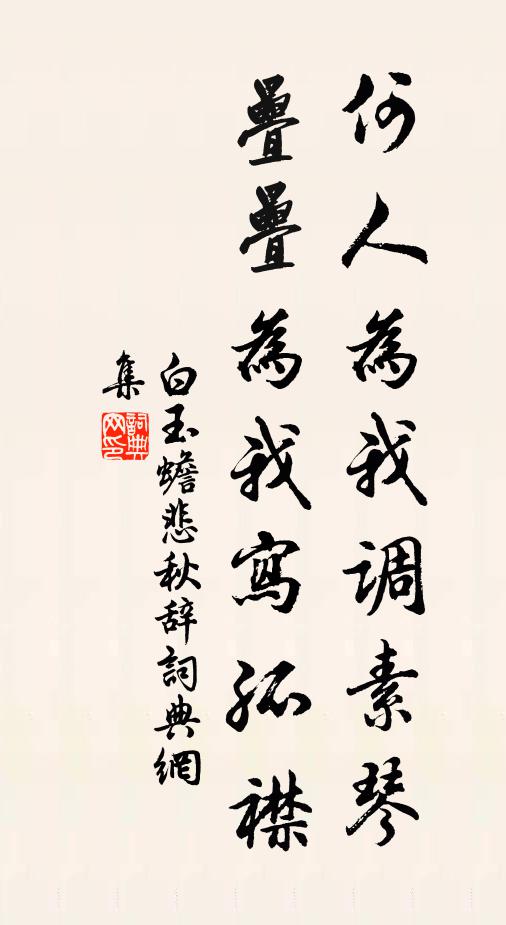 何人為我调素琴
疊疊為我寫孤襟
白玉蟾悲秋辞詞典網
集
詞典网印